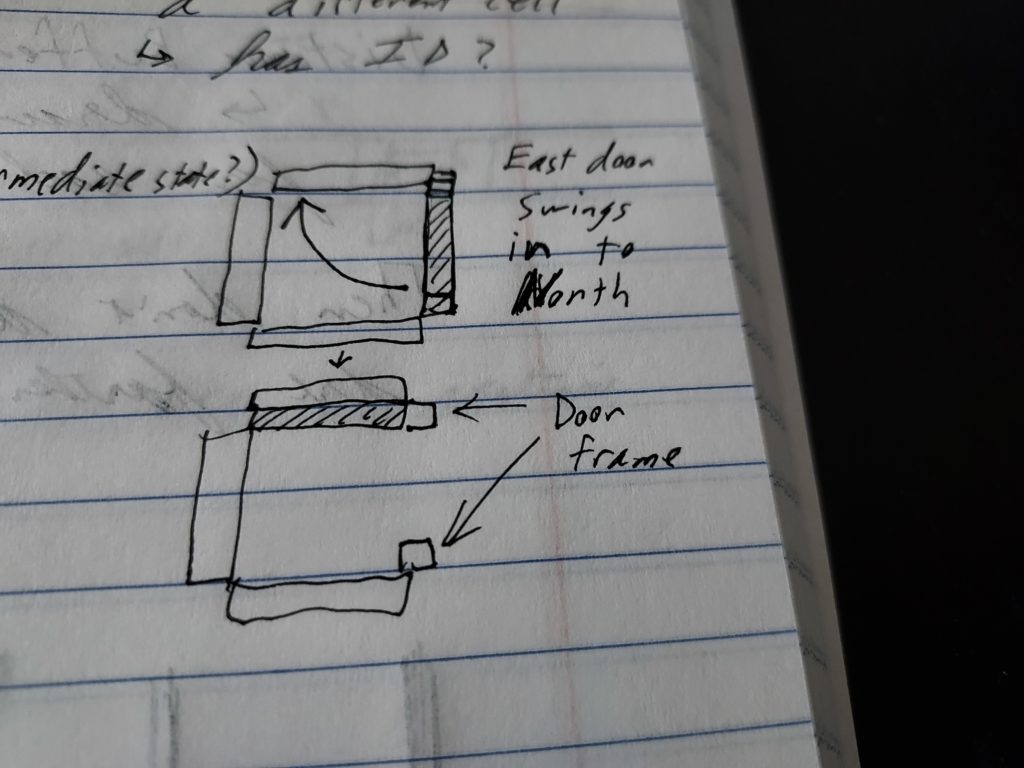 a different cell
↳ has ID?
rmediate state?)
East door
swings
in to
North
Door
frame